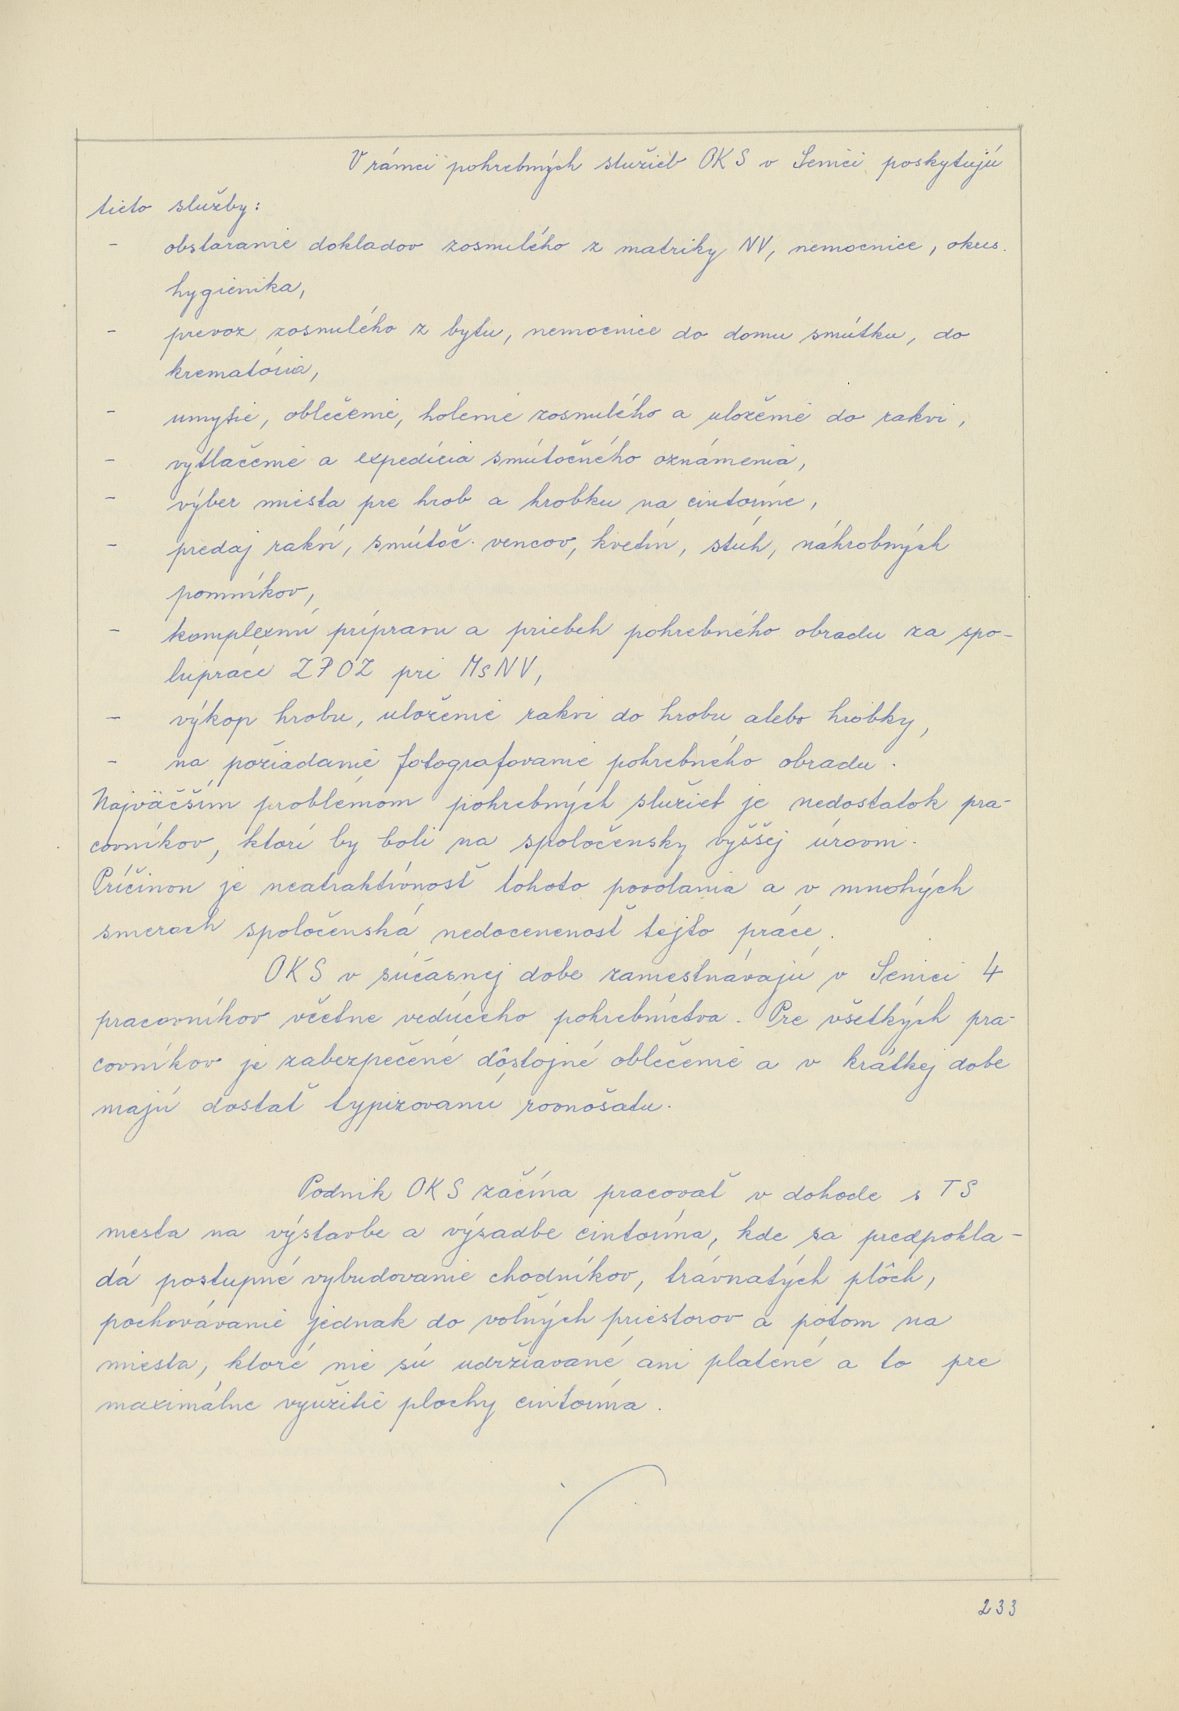 V rámci pohrebných služieb OKS v Senici poskytujú
tieto služby:
- obstaranie dokladov zosnulého z matriky NV, nemocnice, okres.
hygienika,
- prevoz zosnulého z bytu, nemocnice do domu smútku, do
krematória,
- umytie, oblečenie, holenie zosnulého a uloženie do rakvi,
- vytlačenie a expedícia smútočného oznámenia,
- výber miesta pre hrob a hrobku na cintoríne,
- predaj rakví, smútoč. vencov, kvetín, stúh, náhrobných
pomníkov,
- komplexnú prípravu a priebeh pohrebného obradu za spo-
lupráce ZPOZ pri MsNV,
- výkop hrobu, uloženie rakvi do hrobu alebo hrobky,
- na požiadanie fotografovanie pohrebného obradu.
Najväčším problémom pohrebných služieb je nedostatok pra-
covníkov, ktorí by boli na spoločensky vyššej úrovni.
Príčinou je neatraktívnosť tohoto povolania a v mnohých
smeroch spoločenská nedocenenosť tejto práce.
OKS v súčasnej dobe zamestnávajú v Senici 4
pracovníkov včetne vedúceho pohrebníctva. Pre všetkých pra-
covníkov je zabezpečené dôstojné oblečenie a v krátkej dobe
majú dostať typizovanú rovnošatu.
Podnik OKS začína pracovať v dohode s TS
mesta na výstavbe a výsadbe cintorína, kde sa predpokla-
dá postupné vybudovanie chodníkov, trávnatých plôch,
pochovávanie jednak do voľných priestorov a potom na
miesta, ktoré nie sú udržiavané ani platené a to pre
maximálne využitie plochy cintorína.
233